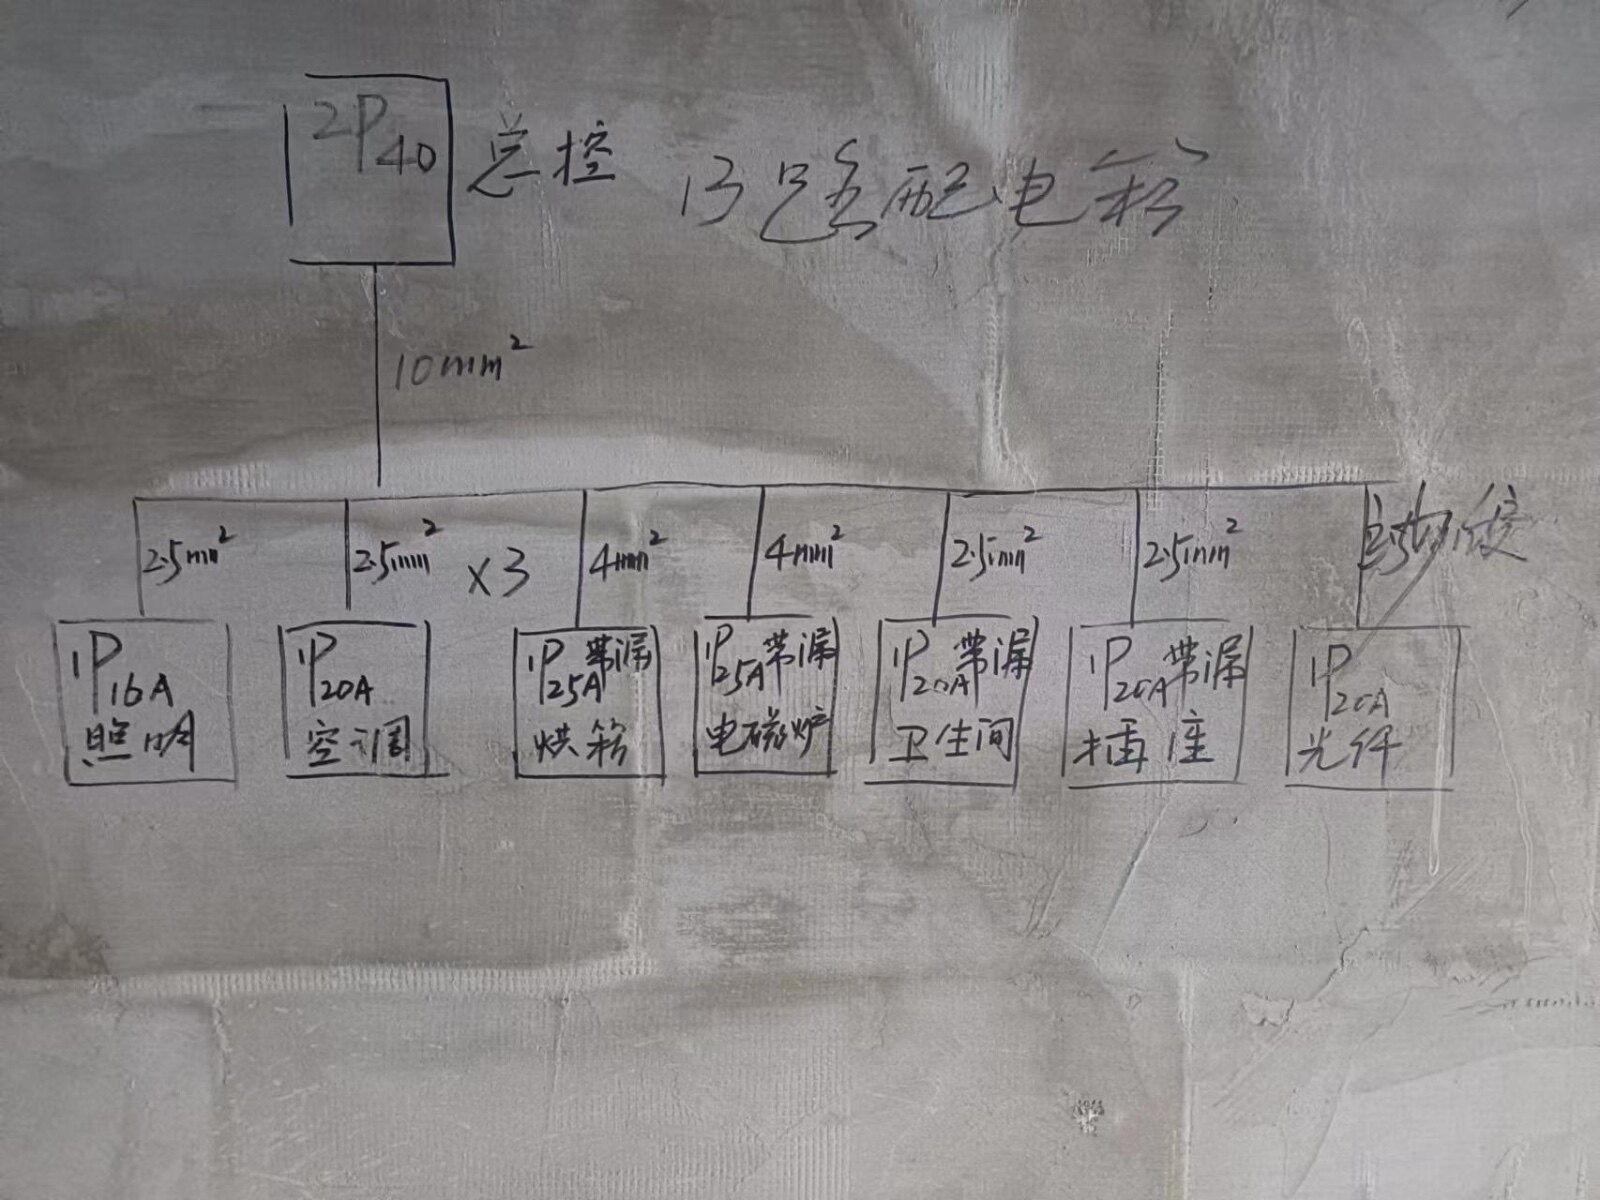 2P40 总控 13路配电箱
10mm²
2.5mm² 2.5mm² ×3 4mm² 4mm² 2.5mm² 2.5mm²
1P16A 照明
1P20A 空调
1P25A带漏 烘箱
1P25A带漏 电磁炉
1P20A带漏 卫生间
1P20A带漏 插座
1P20A 光纤